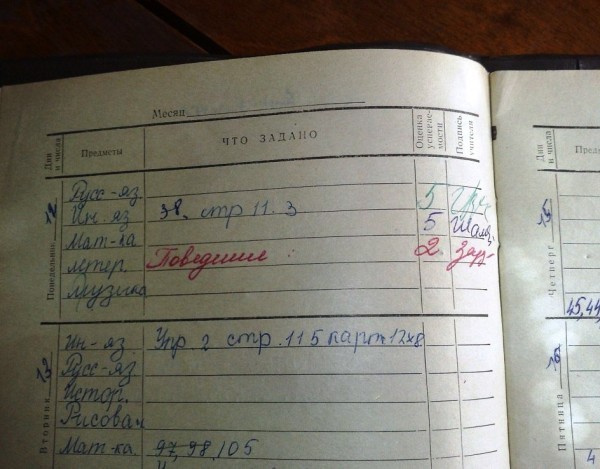 Месяц
Дни и числа Предметы ЧТО ЗАДАНО Оценка успеваемости Подпись учителя
Понедельник 12
Русс-яз. 5
Ин. яз. 38, стр 11. 3 5
Мат-ка Поведение 2
литер.
Музыка
Вторник 13
Ин-яз. Упр 2 стр. 115 карт 12х8
Русс-яз.
Истор.
Рисован
Мат-ка. 97, 98, 105
Дни и числа
Четверг 15
45,44
Пятница 16
4